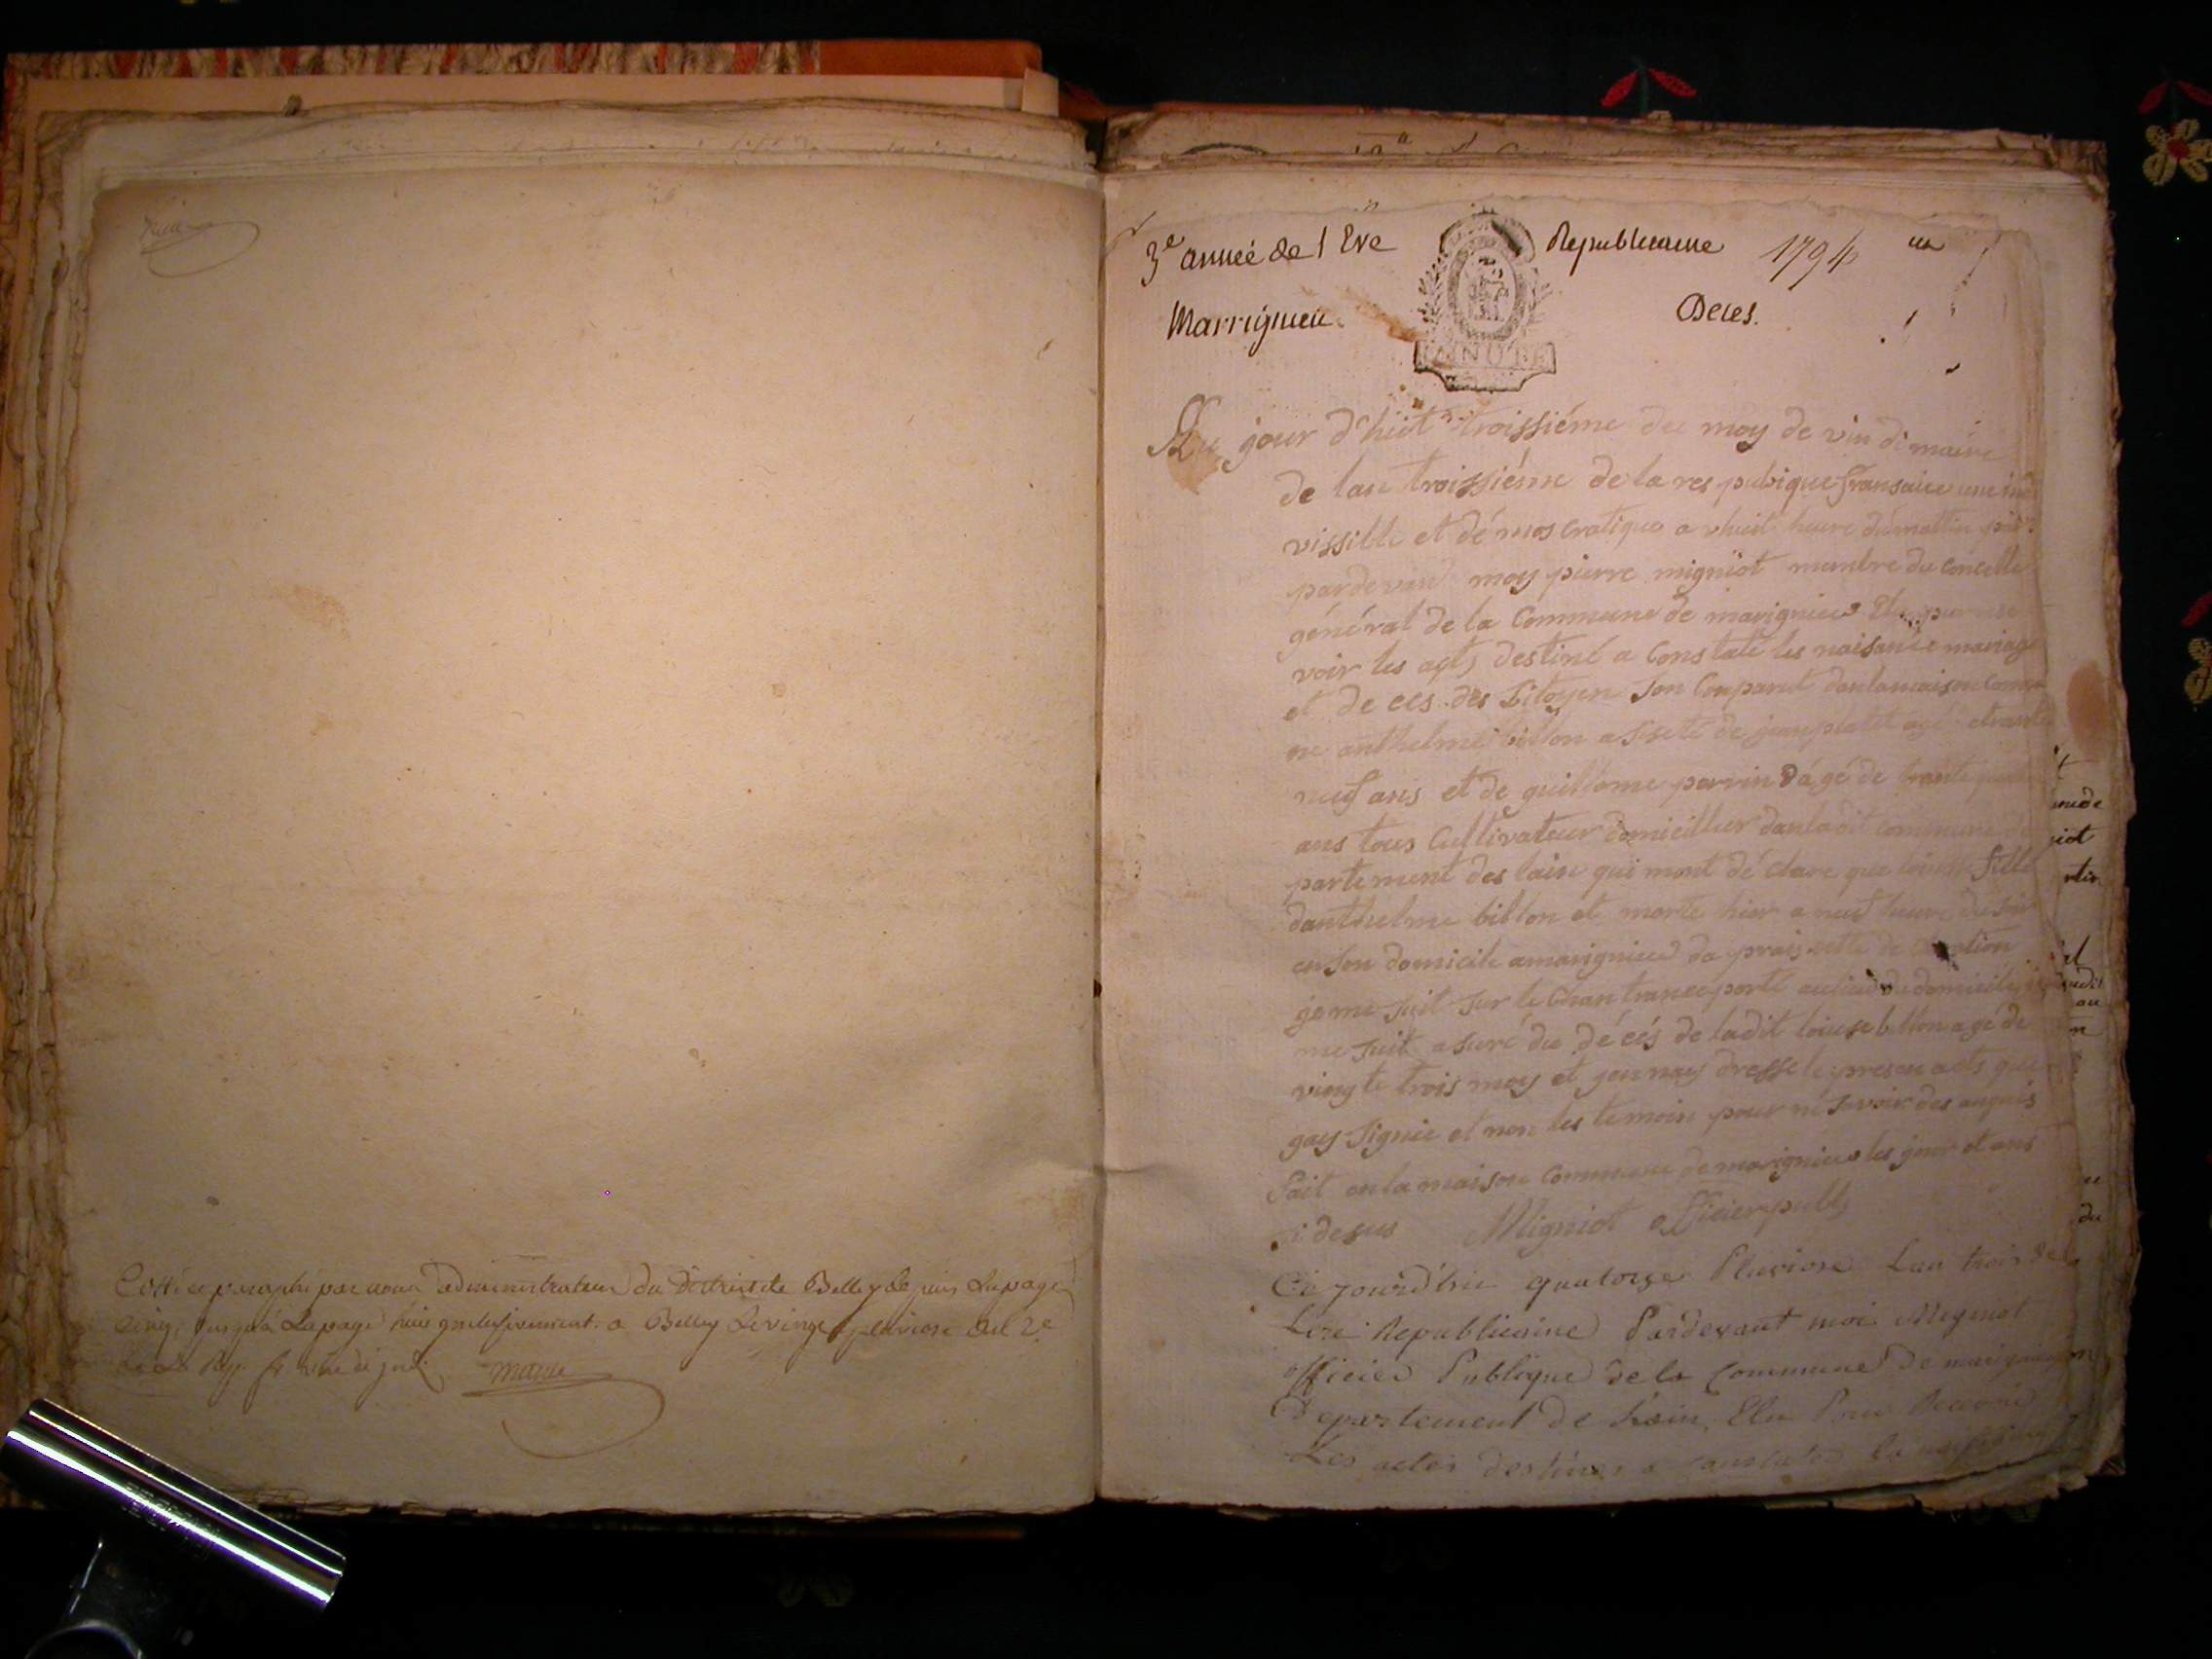 Cotté et paraphé par nous administrateur du District de Belley depuis la page
cinq, jusqu'à la page huit inclusivement. a Belley le vingt pluviose l'an 2e
de la Rep. fr une et ind.
3e année de l'Ere Republicaine 1794
Marrignieu Deces.
MINUTE
Au jour d'huit troissiéme du moy de vin di maire
de lan troissiéme de la res publique fransaice une indi
vissible et démos cratique a vhuit heure du mattin
pardevant moy pierre migniot membre du concelle
général de la Commune de marignieu Elu pour
voir les acts destiné a Constaté les naisance mariage
et de ces des Sitoyen Son Conparut dans la maison Commu
ne anthelme billon assisté de jean platet agé
neuf ans et de guillome perrin d'âgé de trante
ans tous Cultivateur domicillier dans la dit commune dé
partement des lain qui mont dé claré que louise fille
danthelme billon et morte hier a neuf heure du soir
en son domicile a marignieu da prais cette dé claration
je me suit sur le Chan transporté au lieu du domicile
me suit asuré du décés de ladit louise billon agé de
vingte trois moy et jen nay dressé le presan acts que
gay signie et non les temoin pour ne savoir des anquis
fait en la maison Commune de marignieu les jour et ans
ci desus Migniot officier public
Ce jourd'hui quatorze Pluviose L'an trois de
L'ere Republicaine Pardevant moi Migniot
officier Publique de la Commune de marignieu
Departement de L'ain, Elu Pour Recevoir
Les actes destinés a Constater la naissance